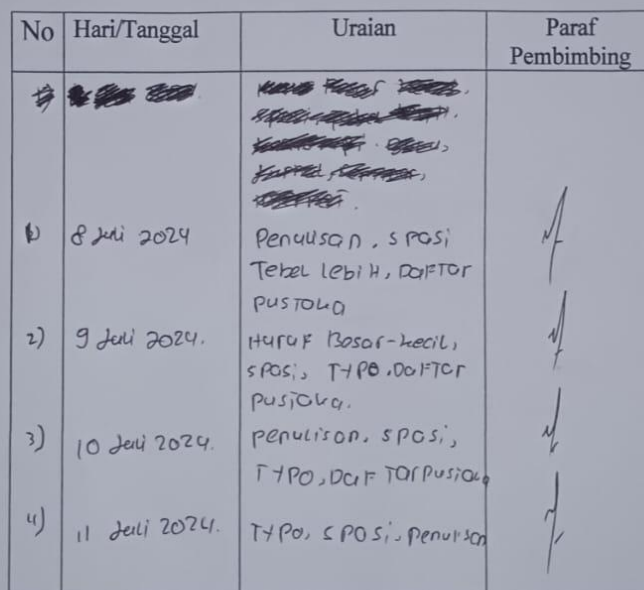 No Hari/Tanggal Uraian Paraf
Pembimbing
1) 8 Juli 2024 Penulisan, spasi
Tebel lebih, DAFTar
pustaka
2) 9 Juli 2024. Huruf Besar-kecil,
spasi, TYPO, DAFTar
pustaka.
3) 10 Juli 2024. penulisan, spasi,
TYPO, DAFTar pustaka
4) 11 Juli 2024. TYPO, spasi, penulisan